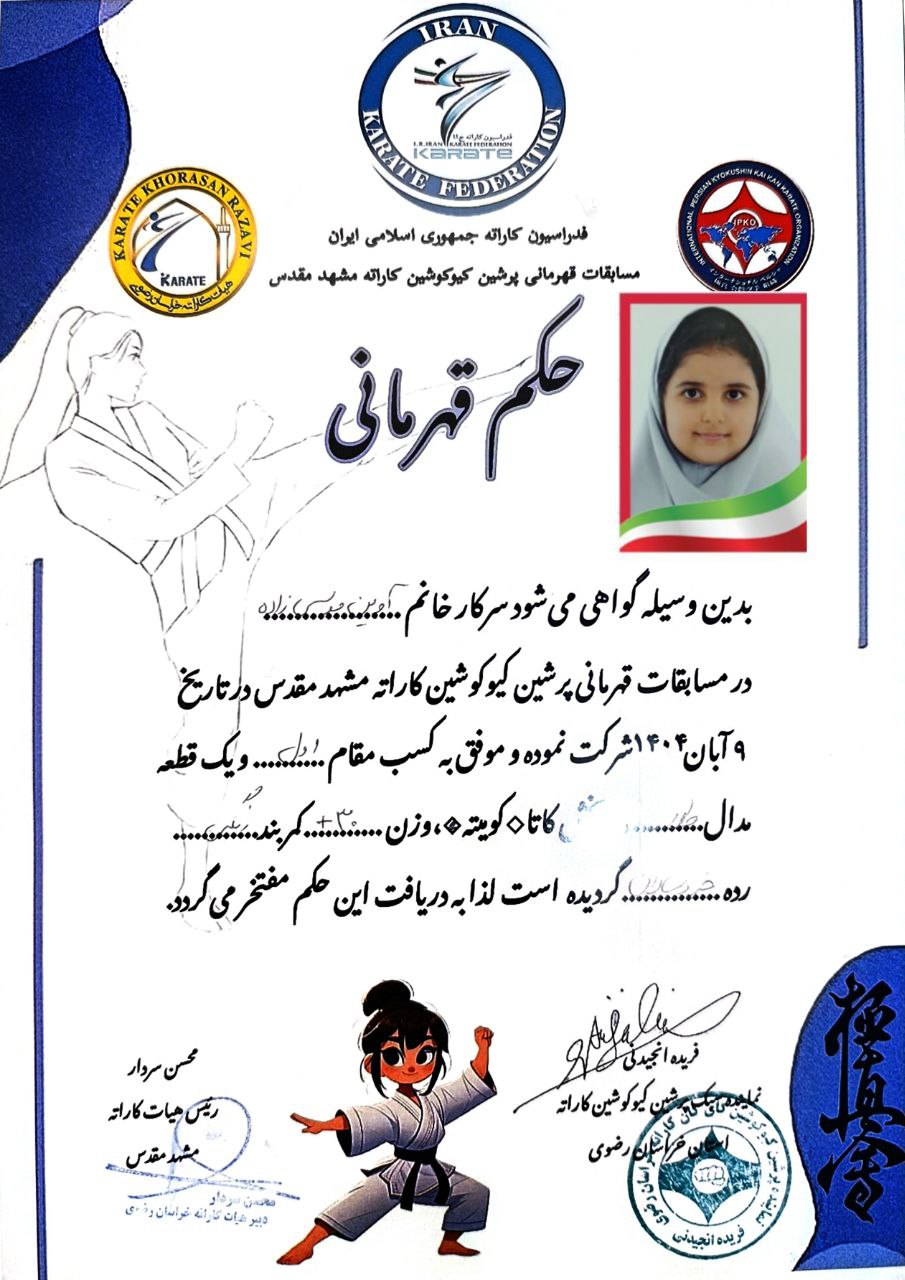 IRAN
KARATE FEDERATION
فدراسیون کاراته ج.ا.ا
I.R.IRAN KARATE FEDERATION
KARATE
KARATE KHORASAN RAZAVI
KARATE
هیات کاراته خراسان رضوی
INTERNATIONAL PERSIAN KYOKUSHIN KAI KAN KARATE ORGANIZATION
IPKO
فدراسیون کاراته جمهوری اسلامی ایران
مسابقات قهرمانی پرشین کیوکوشین کاراته مشهد مقدس
حکم قهرمانی
بدین وسیله گواهی می شود سرکار خانم ....................
در مسابقات قهرمانی پرشین کیوکوشین کاراته مشهد مقدس در تاریخ
۹ آبان ۱۴۰۴ شرکت نموده و موفق به کسب مقام اول و یک قطعه
مدال طلا کاتا ◇ کومیته ◈، وزن ۳۰+ کمربند
رده خردسالان گردیده است لذا به دریافت این حکم مفتخر می گردد.
فریده انجیدنی
نماینده سبک پرشین کیوکوشین کاراته
استان خراسان رضوی
محسن سردار
رئیس هیات کاراته
مشهد مقدس
محسن سردار
دبیر هیات کاراته خراسان رضوی
فریده انجیدنی
極真會